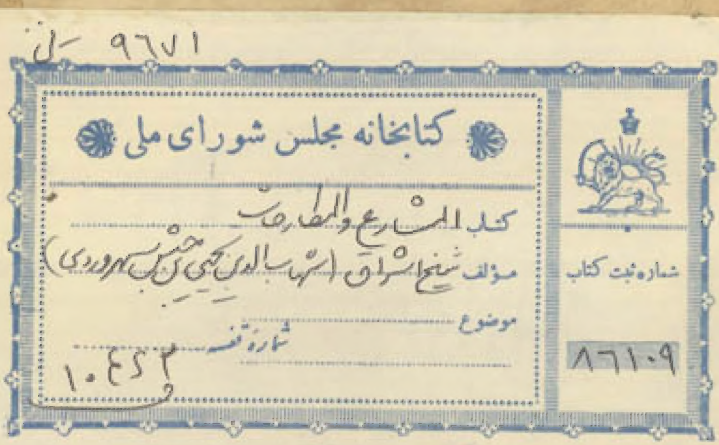 ۹۶۷۱
کتابخانه مجلس شورای ملی
کتاب المشارع والمطارحات
مؤلف شیخ اشراق (شهاب الدین یحیی بن حبش سهروردی)
موضوع
شمارهٔ قفسه
۱۰۴۶۳
شماره ثبت کتاب
۸۶۱۰۹